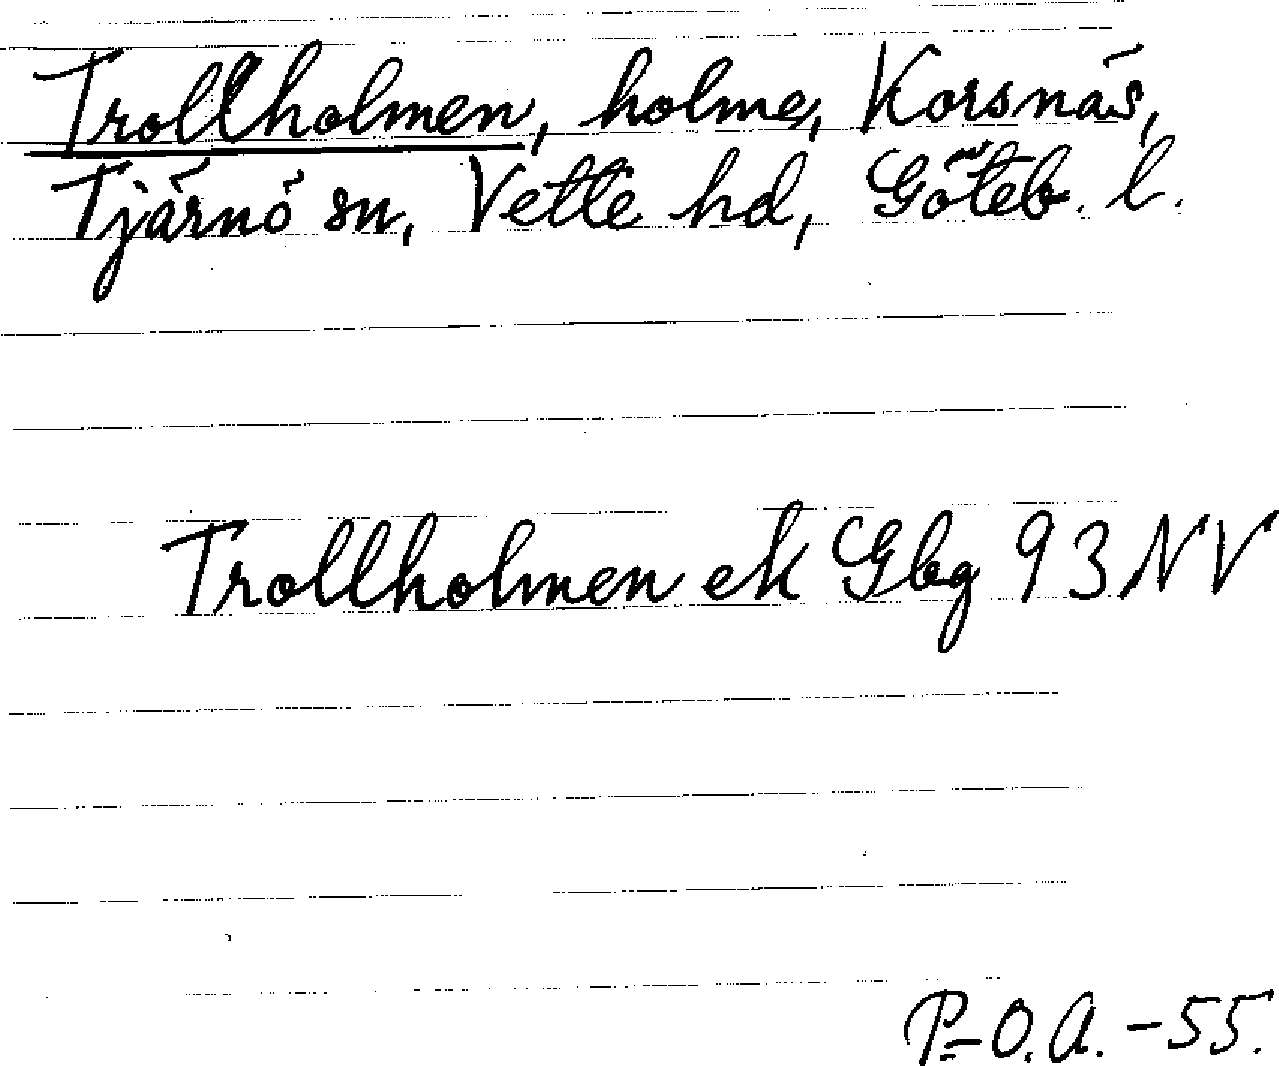 Trollholmen, holme, Korsnäs,
Tjärnö sn, Vette hd, Göteb. l.
Trollholmen ek Gbg 93 NV
P-O.A. -55.